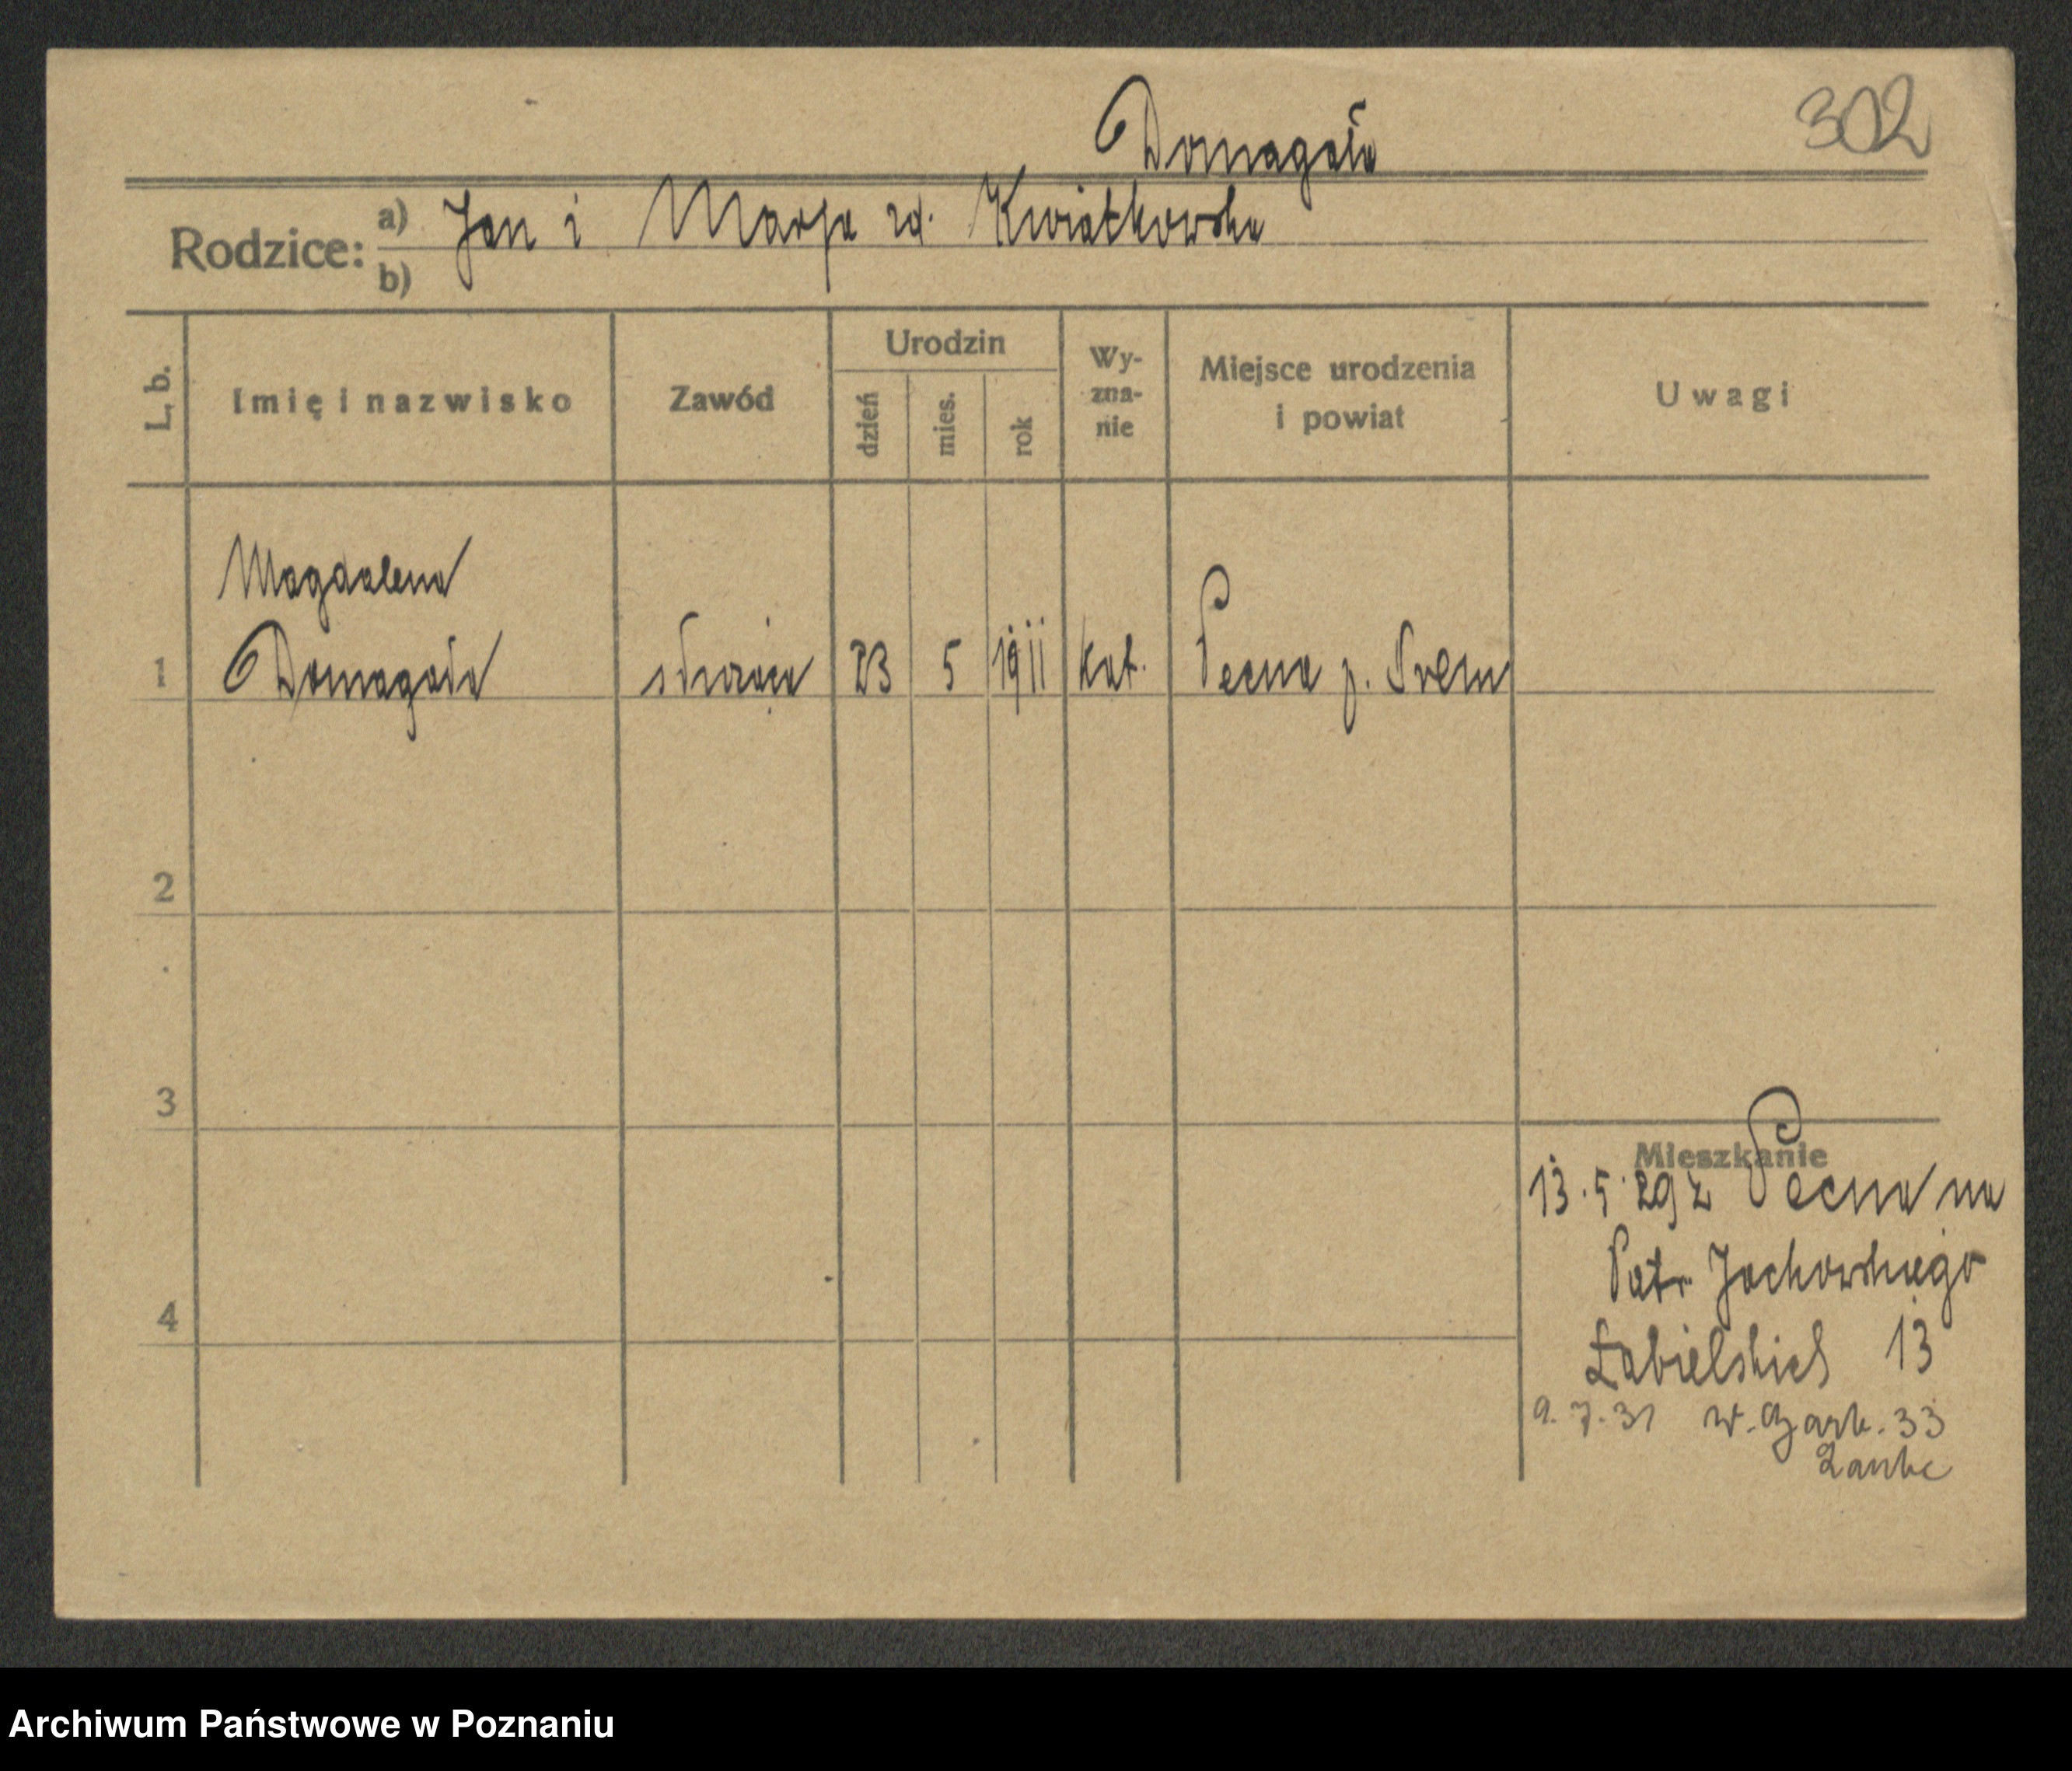 302
Domagała
Rodzice: a) Jan i Marja rd. Kwiatkowska
b)
L. b.
Imię i nazwisko
Zawód
Urodzin
dzień
mies.
rok
Wy-
zna-
nie
Miejsce urodzenia
i powiat
Uwagi
Magdalena
1 Domagała służąca 23 5 1911 kat. Pecna p. Śrem
2
3
4
Mieszkanie
13.5.29 z Pecna na
Patr. Jackowskiego
13
9.7.31 w. Garb. 33
Archiwum Państwowe w Poznaniu